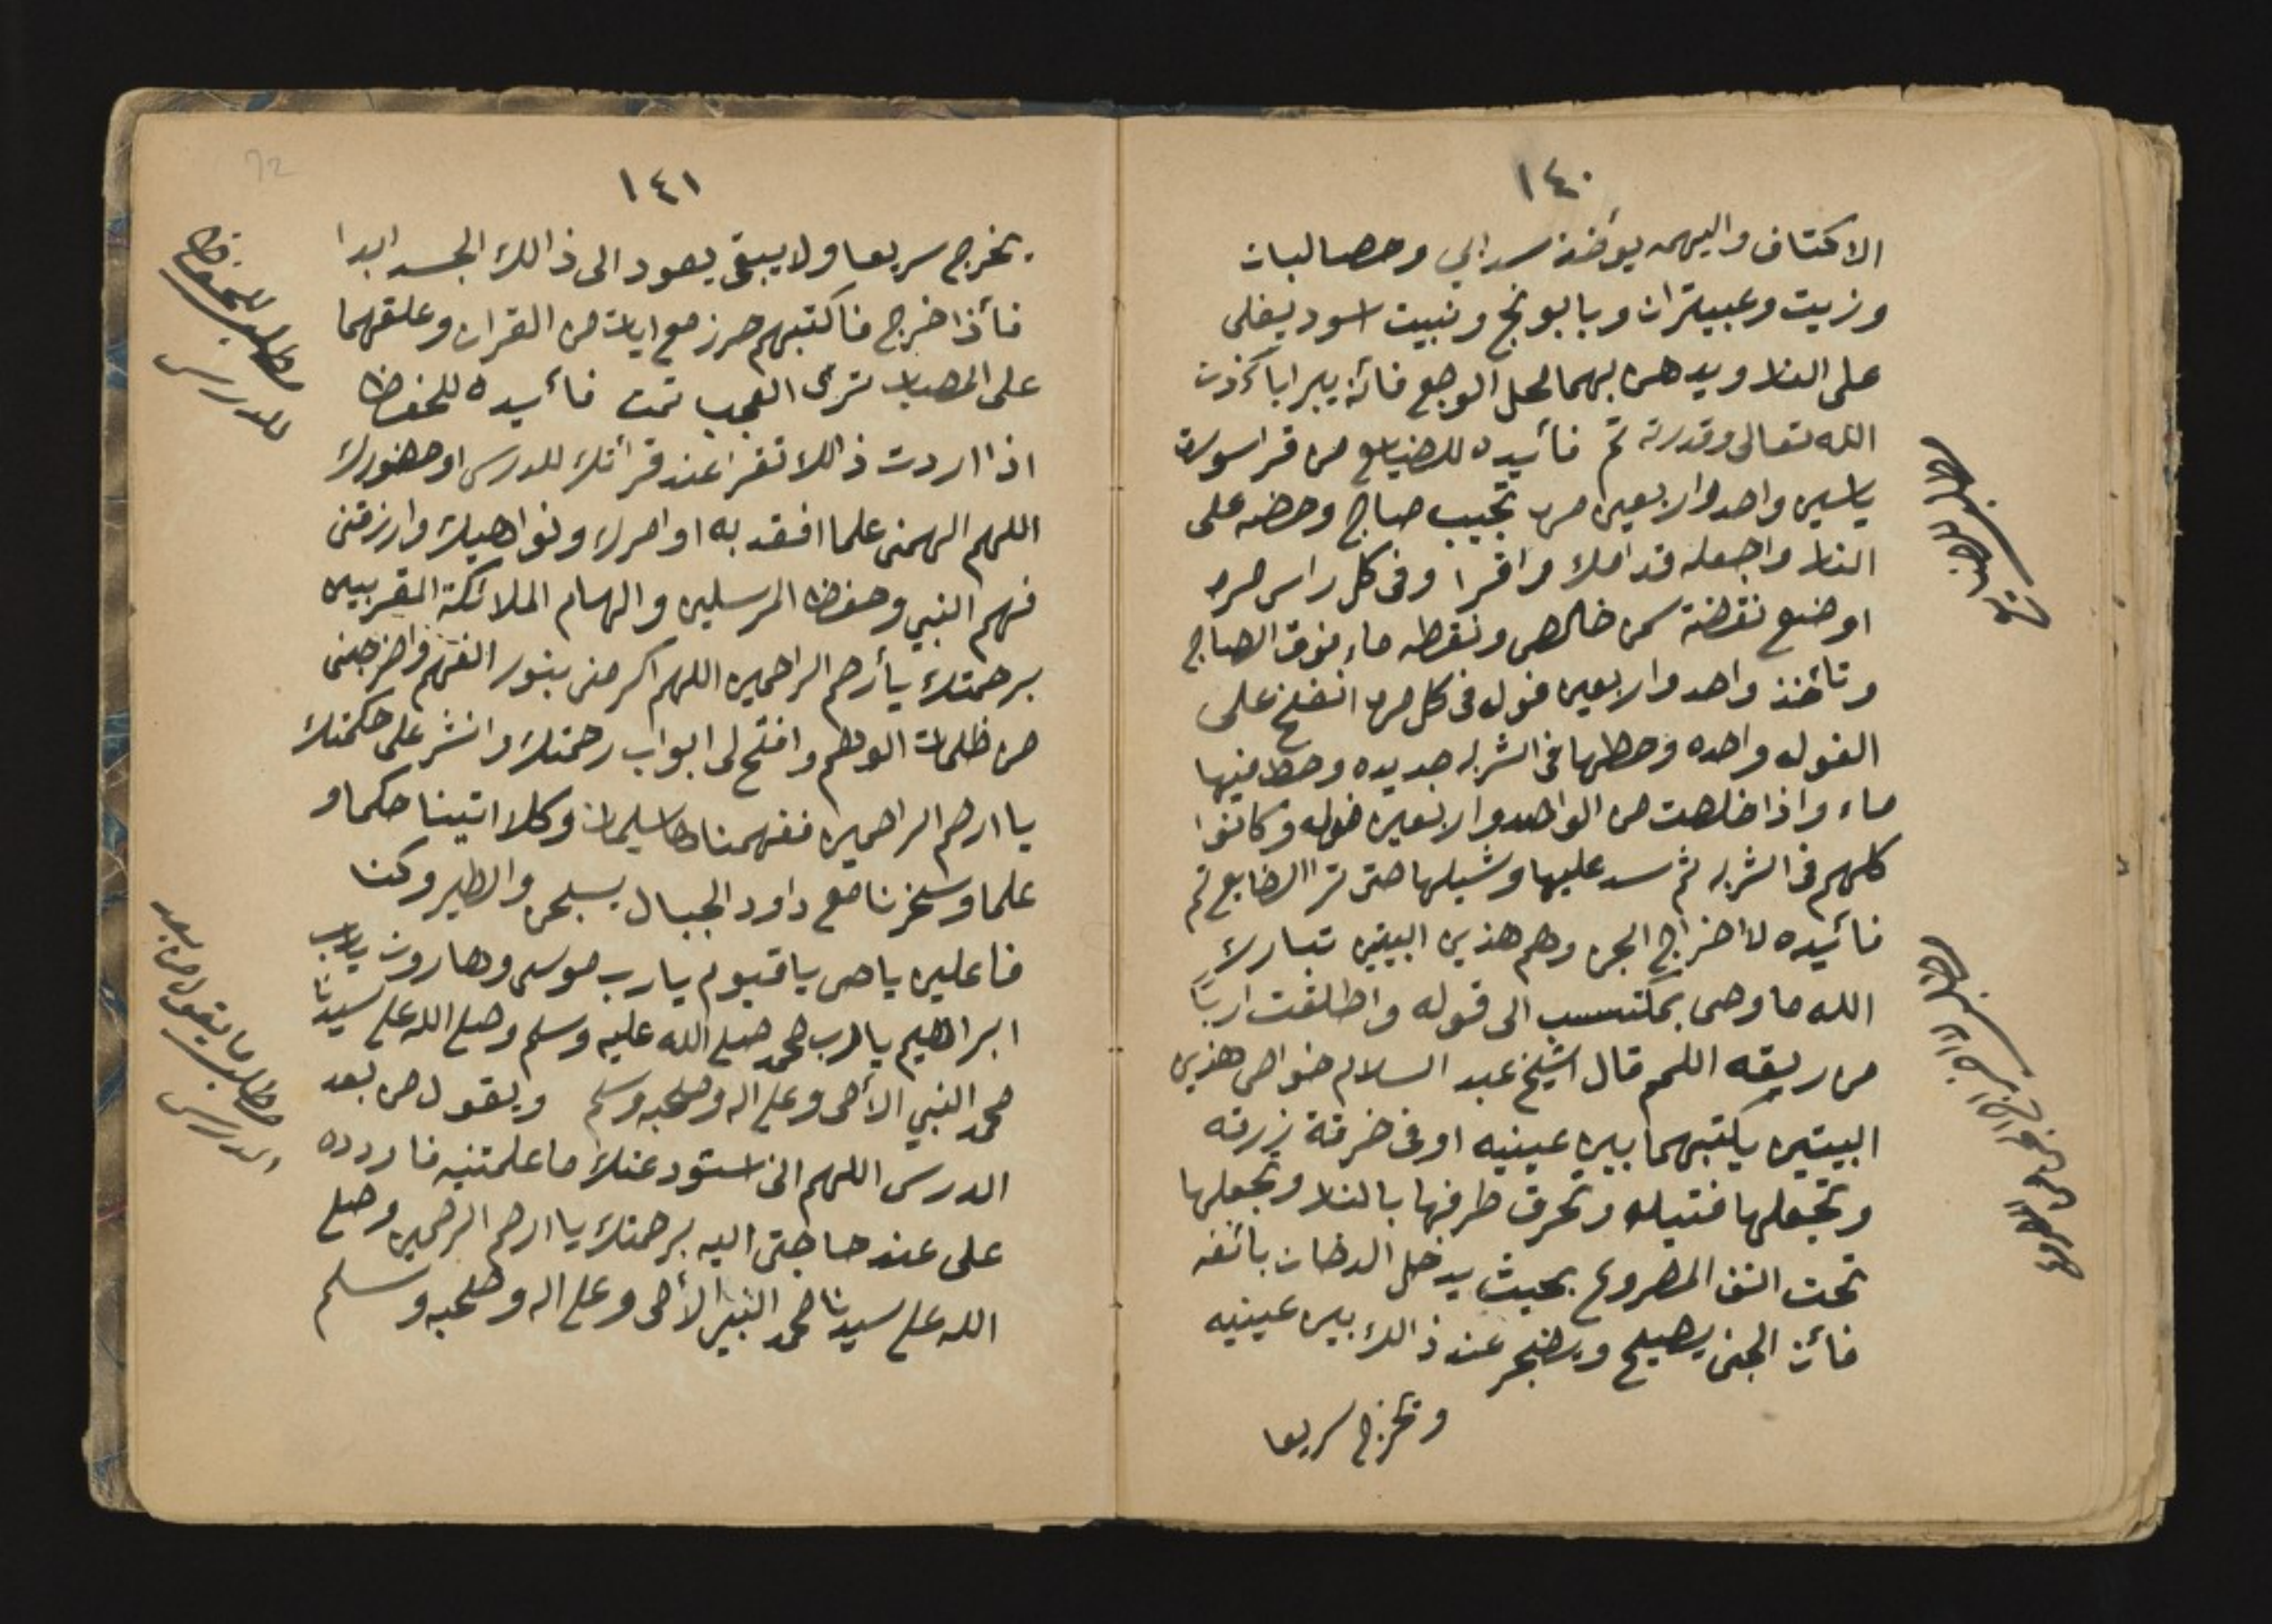 ١٤٠
الاكتاف واليهم يوخذ سدابي وحصالبات
وزيت وعبيتران وبابونج ونبيت اسود يغلى
على النار ويدهن بهما لمحل الوجع فأنه يبرا بأذن
الله تعالى وقدرته تم فأيده للضيايع من قرا سورة
ياسين واحد واربعين مره تجيب صاج وحضه على
النار واجعله قدامك واقرا وفى كل راس مره
اوضع نقطة سمن خالص ونقطه ماء فوق الصاج
وتأخذ واحد واربعين فوله فى كل مره انفخ على
الفوله واحده وحطها فى الشربه جديده وحط فيها
ماء واذا خلصت من الواحد واربعين فوله وكانوا
كلهم فى الشربه ثم سد عليها وشيلها حتى ترا الضايع تم
فأيده لاخراج الجن وهم هذين البيتين تبارك
الله ما وحى بمكتسب الى قوله واطلقت اربًا
من ريقه اللمم قال الشيخ عبد السلام خواص هذين
البيتين يكتبهما بين عينيه او فى خرقة زرقه
وتجعلها فتيله وتحرق طرفها بالنار وتجعلها
تحت انف المصروع بحيث يدخل الدخان بأنفه
فأن الجنى يصيح ويضجر عند ذالك بين عينيه
وتخرج سريعا
مطلب للضايع
مطلب لاخراج الجن من المصروع
١٤١
يخرج سريعا ولا يبقى يعود الى ذالك الجسد ابدا
فأذا خرج فاكتبهم حرز مع ايات من القران وعلقهما
على المصاب ترى العجب تمت فأيده للحفظ
اذا اردت ذالك تقرا عند قرأتك للدرس او حضورك
اللهم الهمنى علما افقه به اوامرك ونواهيك وارزقنى
فهم النبي وحفظ المرسلين والهام الملائكة المقربين
برحمتك يأرحم الراحمين اللهم اكرمنى بنور الفهم واخرجنى
من ظلمات الوهم وافتح لى ابواب رحمتك وانشر على حكمتك
يا ارحم الراحمين ففهمناها سليمان وكلا اتينا حكما و
علما وسخرنا مع داود الجبال يسبحن والطير وكنا
فاعلين ياحى ياقيوم يارب موسى وهارون يارب
ابراهيم يارب محمد صلى الله عليه وسلم وصلى الله على سيدنا
محمد النبي الأمى وعلى اله وصحبه وسلم ويقول من بعد
الدرس اللهم انى استودعتك ما علمتنيه فاردده
على عند حاجتى اليه برحمتك يا ارحم الرحمين وصلى
الله على سيدنا محمد النبى الأمى وعلى اله وصحبه وسلم
مطلب للحفظ
للدرس
مطلب ما يقول من بعد
الدرس
72